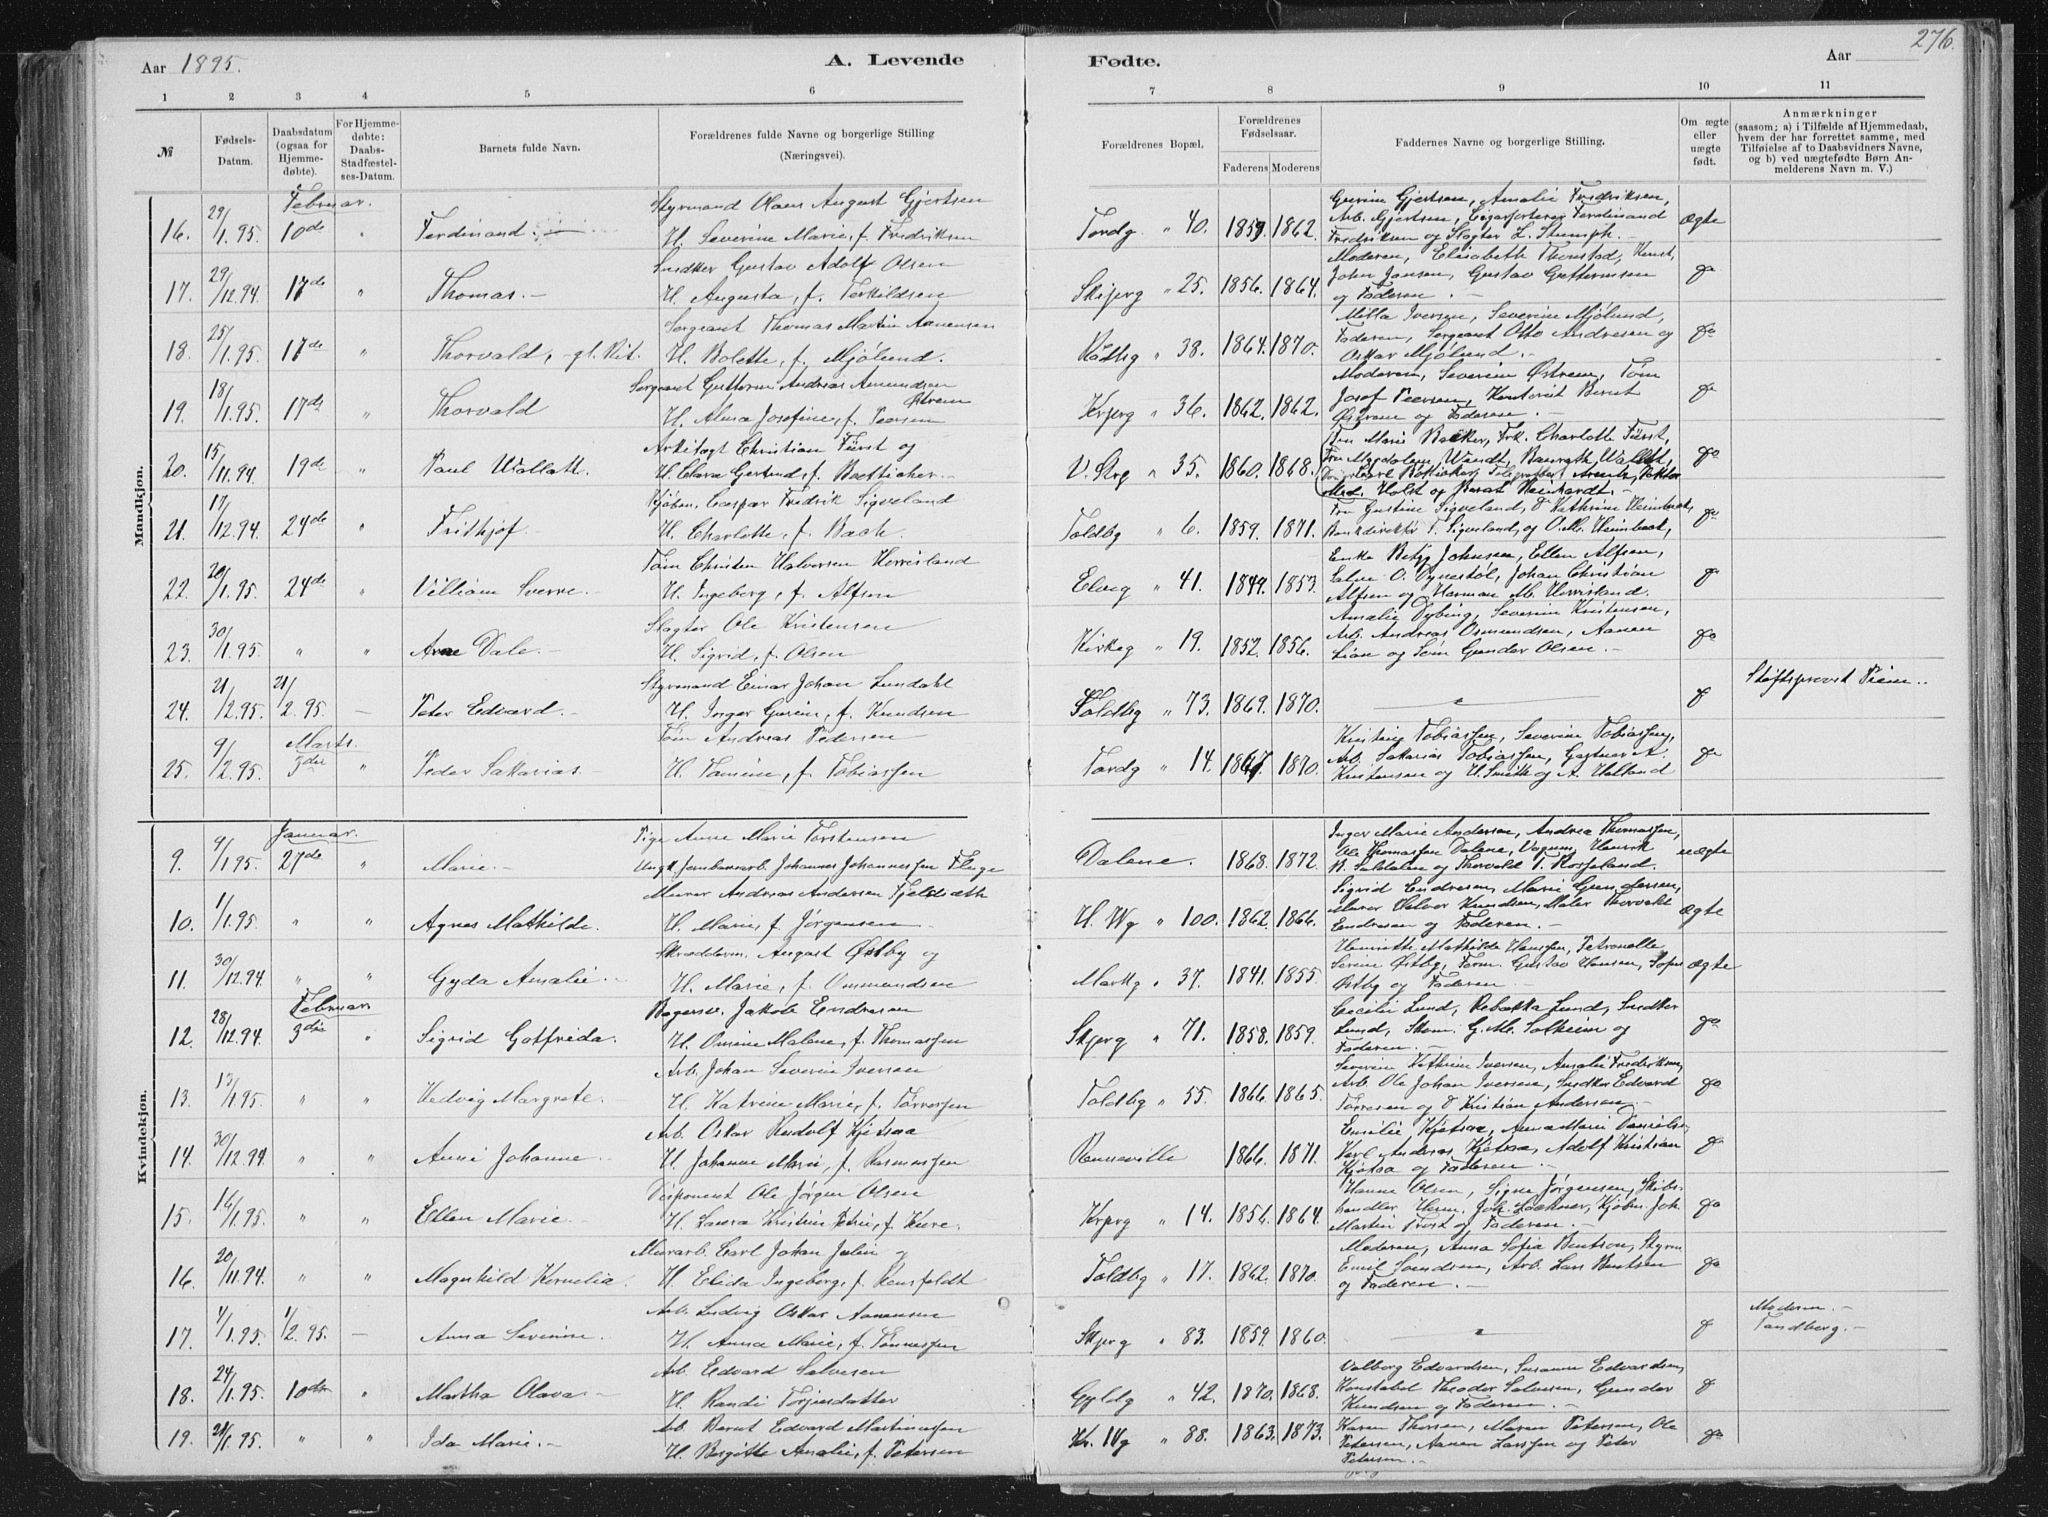 Aar 1895.
A. Levende
Fødte.
Aar
276.
1 2 3 4 5 6 7 8 9 10 11
№
Fødsels-Datum.
Daabsdatum (ogsaa for Hjemmedøbte).
For Hjemmedøbte: Daabs-Stadfæstelses-Datum.
Barnets fulde Navn.
Forældrenes fulde Navne og borgerlige Stilling
(Næringsvei).
Forældrenes Bopæl.
Forældrenes Fødselsaar.
Faderens Moderens
Faddernes Navne og borgerlige Stilling.
Om ægte eller uægte født.
Anmærkninger
(saasom; a) i Tilfælde af Hjemmedaab,
hvem der har forrettet samme, med
Tilføielse af to Daabsvidners Navne,
og b) ved uægtefødte Børn Anmelderens Navn m. V.)
Mandkjøn.
Februar.
Styrmand Olaus August Gjertsen
Gurine Gjertsen, Amalie Fredriksen,
16. 29/1.95. 10de " Ferdinand. H. Severine Marie, f. Fredriksen
Tordg " 40. 1859. 1862. Arb. Gjertsen, Cigarsorterer Ferdinand ægte
Fredriksen og Slagter L. Stumph.
Snedker Gustav Adolf Olsen
Moderen, Elisabeth Thomstad,
17. 29/12.94. 17de " Thomas. H. Augusta, f. Terkildsen
Skipperg " 25. 1856. 1864. John Jensen, Gustav Guttormsen do
og Faderen.
Sergeant Thomas Martin Aanensen
Milla Iversen, Severine Mjølund,
18. 25/1.95. 17de " Thorvald, H. Bolette, f. Mjølund.
Rådhg " 38. 1864. 1870. Faderen, Sergeant Otto Andresen og do
Oskar Mjølund.
Sergeant Guttorm Andreas Amundsen Østrem
Moderen, Severine Østrem, Tøm
19. 18/1.95. 17de " Thorvald H. Alma Josefine, f. Peersen
Krprg " 36. 1862. 1862. Josef Peersen, Kontorist Bernt do
Østrem og Faderen.
Arkitegt Christian Fürst og
Fru Marie Backer, Frk. Charlotte Fürst,
20. 15/11.94. 19de " Paul Wallatt. H. Clara Gertrud, f. Boetticher
V. Strg " 35. 1860. 1868. Fru Magdalene Wendt, do
Holst og
Kjøbm. Caspar Fredrik Sigveland
Fru Gustine Sigveland,
21. 17/12.94. 24de " Frithjof. H. Charlotte, f. Bach.
Toldbg " 6. 1859. 1871. Bankdirektør T. Sigveland, og do
Tøm Christen Halvorsen Herrisland
Enke Johnsen, Ellen Alfsen,
22. 20/1.95. 24de " Villiam Sverre. H. Ingeborg, f. Alfsen
Elveg " 41. 1849. 1853. Johan Christian do
Alfsen og Herman
Slagter Ole Kristensen
Amalie Dybing, Severine Kristensen,
23. 30/1.95. " " Arne Dale. H. Sigrid, f. Olsen
Kirkeg " 19. 1852. 1856. Arb. Andreas Osmundsen, Aanen do
Lian og Søm Gunder Olsen.
Styrmand Einar Johan Lundahl
24. 21/12.95. 21/2.95. — Peter Edvard. H. Inger Gurine, f. Knudsen
Toldbg " 73. 1869. 1870. " do Stiftsprovst
Marts.
Tøm Andreas Pedersen
Kristine Tobiassen, Severine Tobiassen,
25. 9/2.95. 3die " Peder Sakarias H. Tomine, f. Tobiassen
Tordg " 14. 1867. 1870. Arb. Sakarias Tobiassen, Gartner A. do
Kristensen og H. Smith og A. Helland
Kvindekjøn.
Januar.
Pige Anne Marie Torstensen
Inger Marie Andersen, Andrea Thomassen,
9. 9/1.95. 27de " Marie. Ungk. Jernbanearb. Johannes Johannessen
Dalene. 1868. 1872. Ole Thomassen Dalene, Henrik uægte
og Thorvald T. Rosseland.
Murer Andreas Andersen Fjeldsæth
Sigrid Endresen, Marie Gundersen,
10. 1/1.95. " " Agnes Mathilde. H. Marie, f. Jørgensen
H. Wg " 100. 1862. 1866. Murer Halvor Knudsen, Maler Thorvald ægte
Endresen og Faderen.
Skrædderm. August Østby og
Henriette Mathilde Hanssen, Petronelle
11. 30/12.94. " " Gyda Amalie. H. Marie, f. Ommundsen
Markg " 37. 1841. 1855. Serine Østby, Form. Gustav Hansen, ægte
Østby og Faderen.
Februar.
Bagersv. Jakob Endresen
Cecilie Lund, Rebekka Lund, Snedker
12. 28/12.94. 3die " Sigrid Gotfrida. H. Omine Malene, f. Thomassen
Skprg " 71. 1858. 1859. Lund, Skom. G. M. Solheim og do
Faderen.
Arb. Johan Severin Iversen
Severine Kathrine Iversen, Amalie Fredriksen,
13. 13/1.95. " " Hedvig Margrete. H. Katrine Marie, f. Tørressen
Toldbg " 55. 1866. 1865. Arb. Ole Johan Iversen, Snedker Edvard do
Tørresen og Kristian Andersen.
Arb. Oskar Rudolf Kjetsaa
Emilie Kjetsaa, Anna Marie
14. 30/12.94. " " Anni Johanne. H. Johanne Marie, f. Rasmussen
Renneville 1866. 1871. Karl Andreas Kjetsaa, Adolf Kristian do
Kjetsaa og Faderen.
Disponent Ole Jørgen Olsen
Hanne Olsen, Signe Jørgensen,
15. 16/1.95. " " Ellen Marie. H. Laura Kristine Petrie, f. Kure.
Krprg " 14. 1856. 1864. Kjøbm. Joh. do
Martin Frost og Faderen.
Murarb. Carl Johan Julin og
Moderen, Anna Sofia Bentsen, Styrm
16. 20/11.94. " " Magnhild Kornelia. H. Elida Ingeborg, f. Rensfeldt
Toldbg " 17. 1862. 1870. Emil Svendsen, Arb. Lars Bentsen do
og Faderen.
Arb. Ludvig Oskar Aanensen
Moderen.
17. 4/1.95. 1/2.95. — Anna Severine. H. Anna Marie, f. Tønnessen
Skprg " 83. 1859. 1860. " do Tandberg.
Arb. Edvard Salvesen
Valborg Edvardsen, Susanne Edvardsen,
18. 24/1.95. 10de " Martha Olava H. Randi Torjusdatter
Gyldg " 42. 1870. 1868. Konstabel Theodor Salvesen, Gunder do
Knudsen og Faderen.
Arb. Bernt Edvard Martinussen
Karen Thorsen, Maren Petersen, Ole
19. 21/1.95. " " Ida Marie. H. Bergitte Amalie, f. Petersen
Kr. Wg " 88. 1863. 1873. Petersen, Aanen Larssen og Peter do
Petersen.